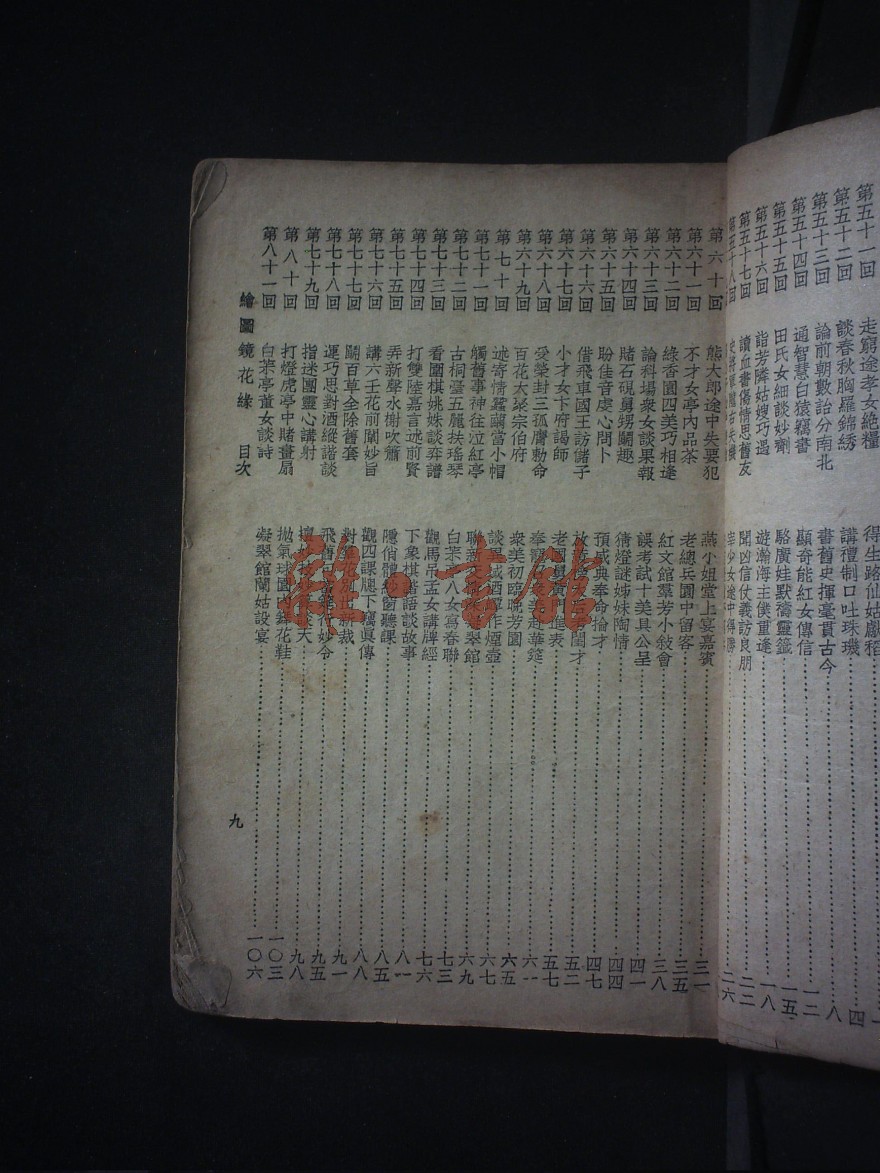 第五十一回 走窮途孝女絕糧 得生路仙姑獻稻 一
第五十二回 談春秋胸羅錦綉 講禮制口吐珠璣 四
第五十三回 論前朝數詒分南北 書舊史揮毫貫古今 八
第五十四回 通智慧白猿竊書 顯奇能紅女傳信 一二
第五十五回 田氏女細談妙劑 駱廣娃默禱靈籤 一五
第五十六回 詣芳隣姑嫂巧遇 遊瀚海主僕重逢 一八
第五十七回 讀血書傷情思舊友 聞凶信仗義訪良朋 二二
第五十八回 二六
第六十回 熊大郎途中失要犯 燕小姐堂上宴嘉賓 三一
第六十一回 不才女亭內品茶 老總兵園中留客 三五
第六十二回 綠香園四美巧相逢 紅文館羣芳小敍會 三八
第六十三回 論科場衆女談果報 誤考試十美具公呈 四一
第六十四回 賭石硯舅甥鬭趣 猜燈謎姊妹陶情 四四
第六十五回 盼佳音虔心問卜 預盛典奉命掄才 四七
第六十六回 借飛車國王訪儲子 放 閨才 五二
第六十七回 小才女卞府謁師 老國 進表 五七
第六十八回 受榮封三孤膺勅命 奉 赴華筵 六一
第六十九回 百花大聚宗伯府 衆美初臨晚芳園 六五
第七十回 述奇情蠶繭當小帽 談異域酒罈作煙壺 六七
第七十一回 觸舊事神往泣紅亭 聯新 翠館 六九
第七十二回 古桐臺五麗撫瑤琴 白茉亭八女寫春聯 七三
第七十三回 看圍棋姚姝談弈譜 觀馬吊孟女講牌經 七六
第七十四回 打雙陸嘉言述前賢 下象棋諧語談故事 八一
第七十五回 弄新聲水榭吹簫 隱俏體紗窗聽課 八五
第七十六回 講六壬花前闡妙旨 觀四課牕下竊眞傳 八八
第七十七回 鬭百草全除舊套 對 花別出新裁 九一
第七十八回 運巧思對酒縱諧談 飛舊 妙令 九五
第七十九回 指迷團靈心講射 談天 九八
第八十回 打燈虎亭中賭畫扇 拋氣球園 花鞋 一〇三
第八十一回 白茉亭董女談詩 凝翠館蘭姑設宴 一〇六
繪圖鏡花緣 目次
九
雜·書館